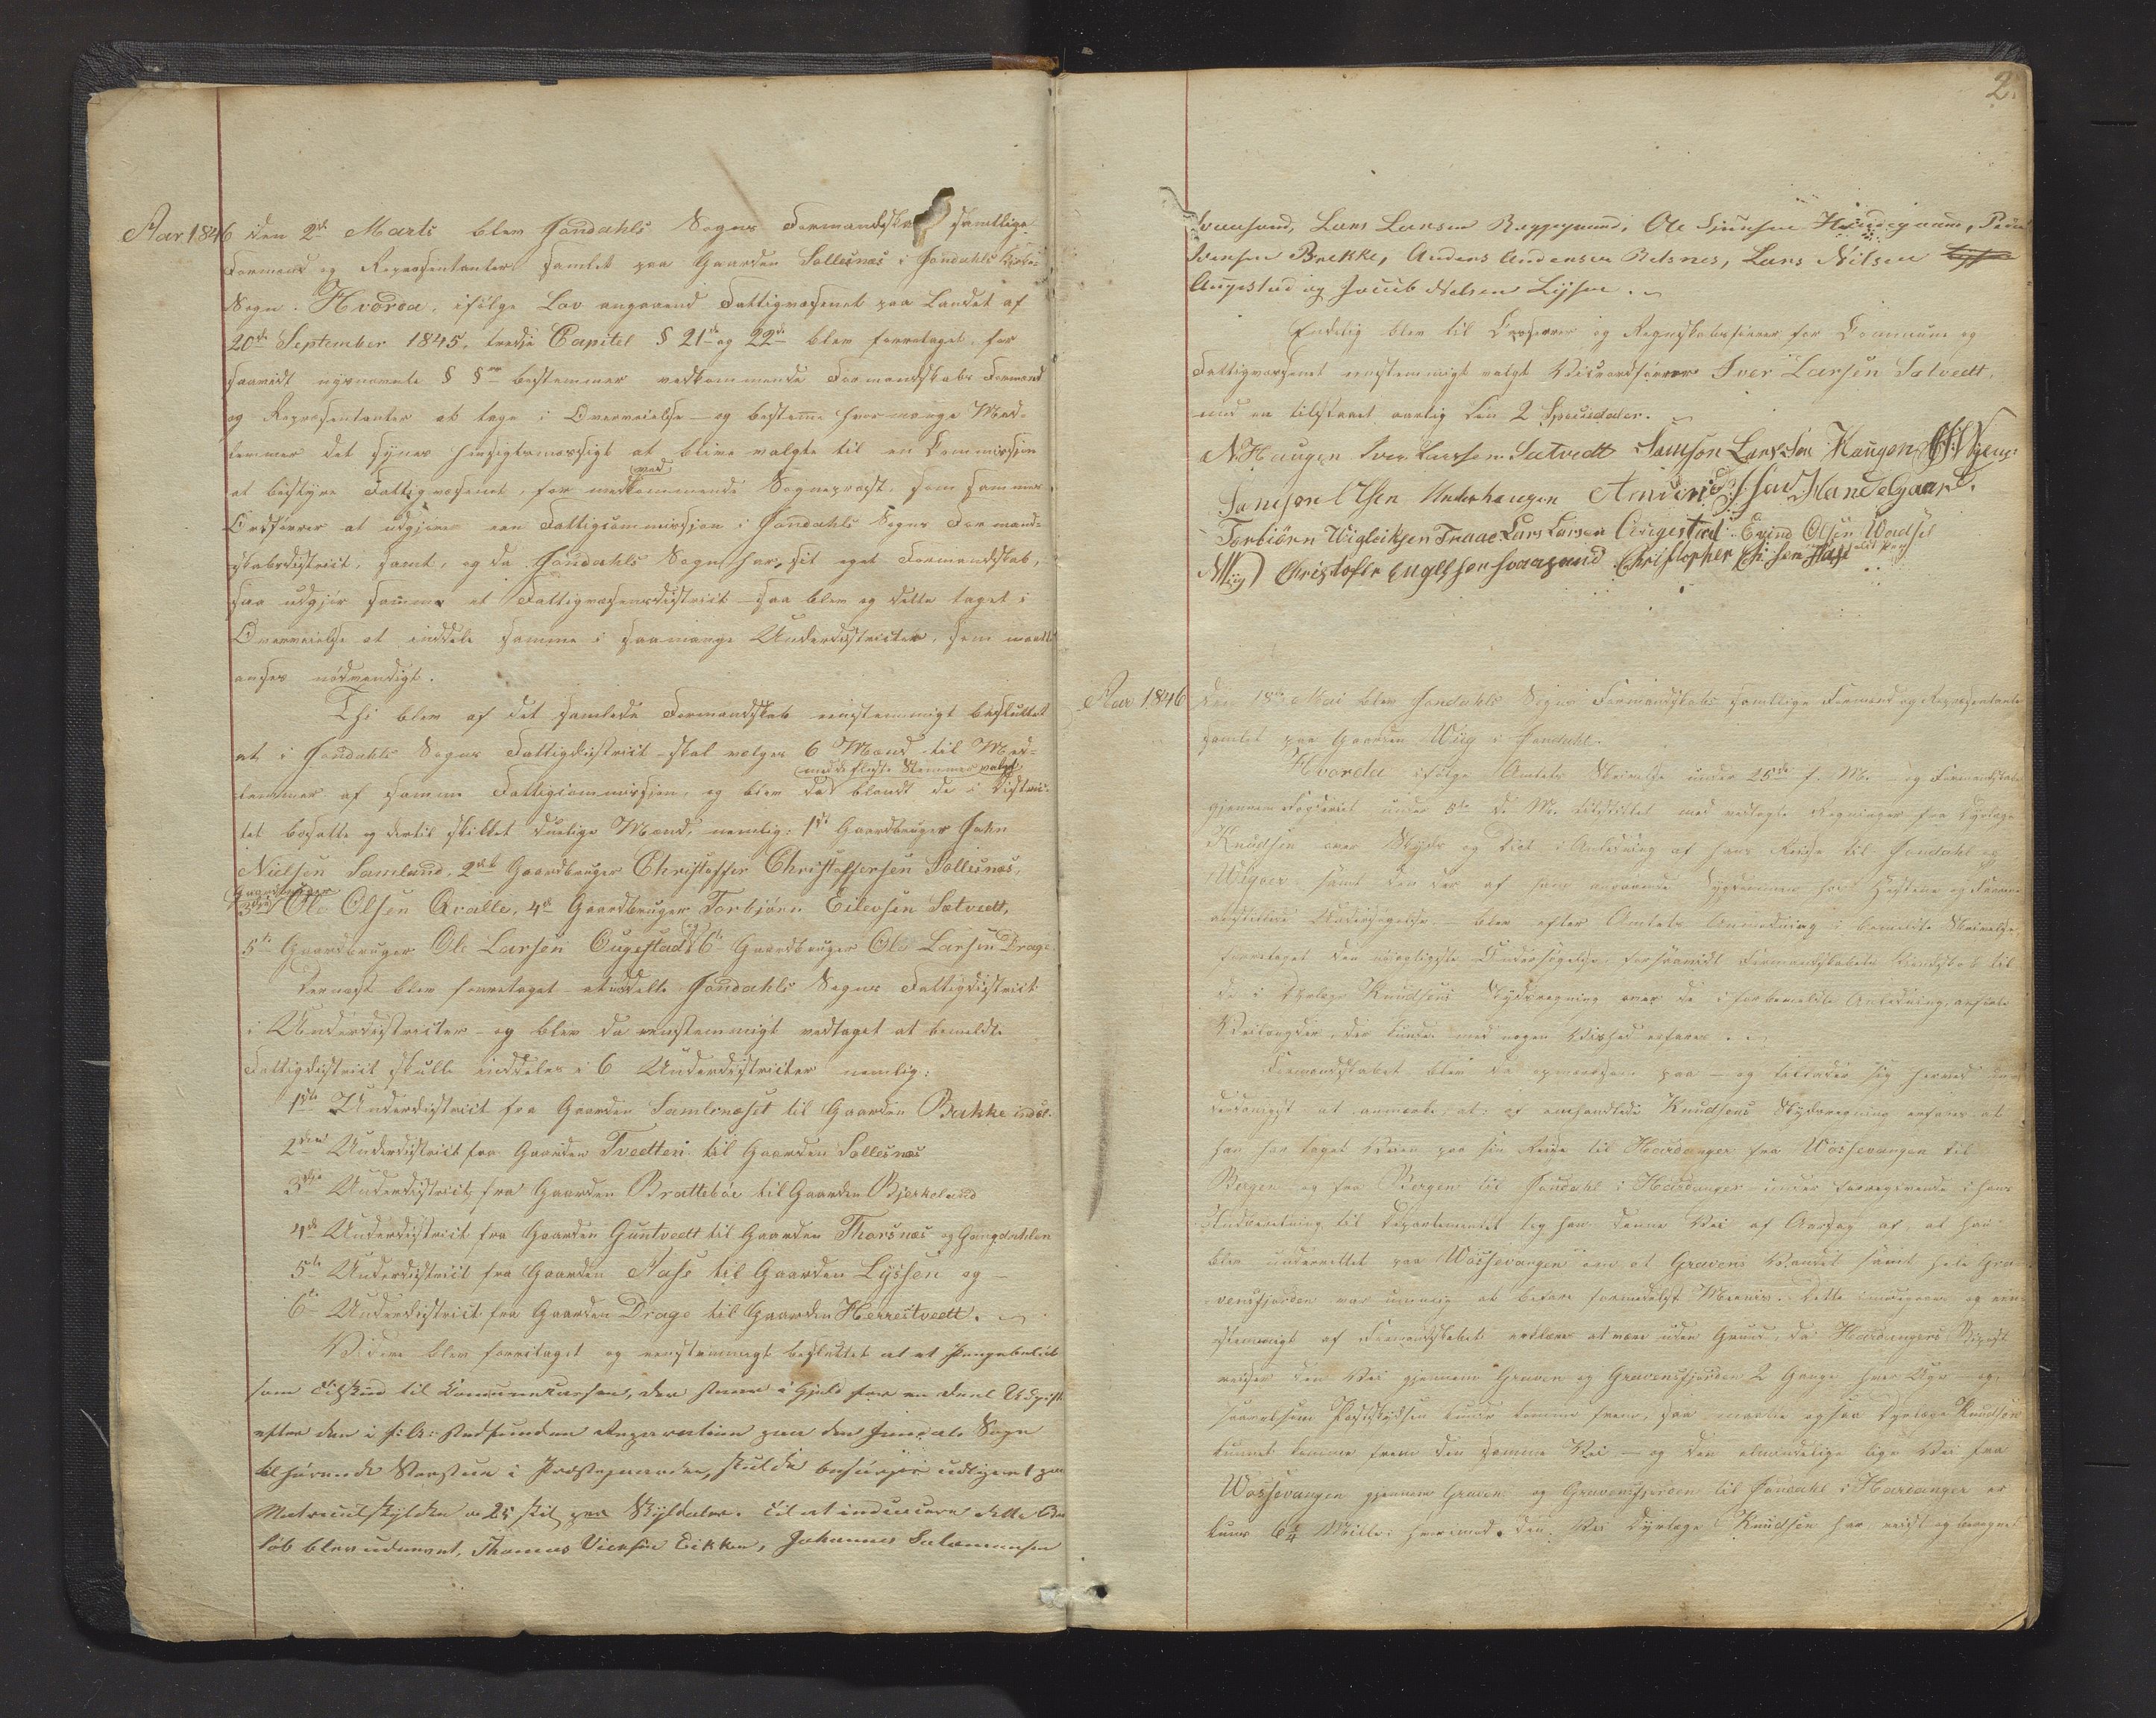 Aar 1846 den 2de Marts blev Jondahls Sogns Formandskab samtlige
Formænd og Repræsentanter samlet paa Gaarden Sollesnæs i Jondahls
Sogn. Hvorda, ifølge Lov angaaend Fattigvæsenet paa Landet af
20de September 1845, tredje Capitel § 21de og 22de blev foretaget, for
saavidt nysnævnte § §er bestemmer vedkommende Formandskabs Formænd
og Repræsentanter at tage i Overveielse – og bestemme hvor mange Med-
lemmer det synes hensigtsmæssigt at blive valgte til en Commission
at bestyre Fattigvæsenet, for vedkommende Sognepræst, som sammes
Ordfører at udgjøre een Fattigcommission i Jondahls Sogns Formand-
skabsdistrict, samt, og da Jondahls Sogn har sit eget Formandskab,
saa udgjør samme et Fattigvæsensdistrict – saa blev og dette taget i
Overveielse at inddele samme i saamange Underdistricter, som maatte
ansees nødvendigt.
Thi blev af det samlede Formandskab eenstemmigt besluttet
at i Jondahls Sogns Fattigdistrict skal vælges 6 Mænd til Med-
med de fleste Stemmer valgt
lemmer af samme Fattigcommission, og blev da blandt de i Distric-
tet bosatte og dertil skikket duelige Mænd, nemlig: 1ste Gaardbruger John
Nielsen Samland, 2det Gaardbruger Christoffer Christoffersen Sollesnæs,
Gaardbruger
3die Ole Olsen Qvalle, 4de Gaardbruger Torbjørn Eilevsen Sætvedt,
5te Gaardbruger Ole Larsen Augestad og 6te Gaardbruger Ole Larsen Drage.
Dernæst blev foretaget at inddelle Jondahls Sogns Fattigdistrict
i Underdistricter – og blev da eenstemmigt vedtaget at bemeldte
Fattigdistrict skulle inddeles i 6 Underdistricter nemlig:
1ste Underdistrict fra Gaarden Samlenæset til Gaarden Bakke incl.
2den Underdistrict fra Gaarden Tvedten til Gaarden Sollesnæs
3die Underdistrict fra Gaarden Brattebøe til Gaarden Bjerkeland
4de Underdistrict fra Gaarden Guntvedt til Gaarden Thorsnæs og Gangdahlen
5te Underdistrict fra Gaarden Aase til Gaarden Lyssen og –
6te Underdistrict fra Gaarden Drage til Gaarden Herrestvedt.
Videre blev foretaget og eenstemmigt besluttet at et Pengebeløb
som Tilskud til Communecassen, der staaer i Gjeld for en deel Udgift
efter den i f: A: stedfundne Reparation paa den Jondals Sogn
tilhørende Borstue i Præstegaarden, skulde udlignet paa
Matriculskylden a 25 skil pr Skyldaler. Til at indkræve dette Be-
løb blev udnævnt, Thomas Eikken, Johannes Salamonsen

2.
Svaasand, Lars Larsen Byggegaard, Ole Handegaard, Peder
Iversen Brekke, Anders Andersen Belsnes, Lars Nilsen
Augestad og Jacob Nielsen Lyssen.
Endelig blev til Casserer og Regnskabsfører for Commune og
Fattigvæsenet eenstemmigt valgt Viceordfører Iver Larsen Sætvedt,
med en tilstaaet aarlig Løn 2 Speciedaler.
N Haugen Iver Larssen Sætvedt Samson Larssen Haugen
Samson Olsen Underhaugen Amund Handegaard.
Torbiørn Wigleiksen Traae Lars Larsen Augestad Eyind Olsen Wodsel
Wiig Christofer Engelsen Svaasand Christopher

Aar 1846 den 18de Mai blev Jondahls Sogns Formandskabs samtlige Formænd og Repræsentanter
samlet paa Gaarden Wiig i Jondahl.
Hvorda ifølge Amtets Skrivelse under 25de f. M. og Formandskabet
gjennem Fogderiet under 5te d. M. tilstillet med vedlagte Regninger fra Dyrlæge
Knudsen over Skyds og Diæt i Anledning af hans Reise til Jondahl og
Wigøer samt den der af ham angaaende Sygdommen hos Hestene og
anstillede Undersøgelse – blev efter Amtets Anmodning i bemeldte Skrivelse,
foretaget den nøiagtigste Undersøgelse, forsaavidt Formandskabets Kiendskab til
de i Dyrlæge Knudsens Skydsregning over de i forbemeldte Anledning anførte
Veilængder, der kunde med nogen Vished erfares.
Formandskabet blev da opmærksom paa – og tillader sig herved
at anmærke, at: af omhandlede Knudsens Skydsregning erfares at
han har taget Veien paa sin Reise til Hardanger fra Wossevangen til
Bergen og fra Bergen til Jondahl i Hardanger under foregivende i hans
Indberetning til Departementet tog han denne Vei af Aarsag af, at han
blev underrettet paa Wossevangen om at Gravens Vandet samt hele Gra-
vensfjorden var umuelig at befare formedelst Meenis. Dette imidlertid og een-
stemmigt af Formandskabet erklæres at være uden Grund, da Hardangers Bipost
reiser den Vei gjennem Graven og Gravensfjorden 2 Gange hver Uge – og,
saavelsom Postskydsen kunde komme frem, saa maatte ogsaa Dyrlæge Knudsen
kunnet komme frem den samme Vei – og den almindelige lige Vei fra
Wossevangen gjennem Graven og Gravensfjorden til Jondahl i Hardanger er
kuns 6¼ Miile: hvorimod den Vei Dyrlæge Knudsen har reist og beregnet